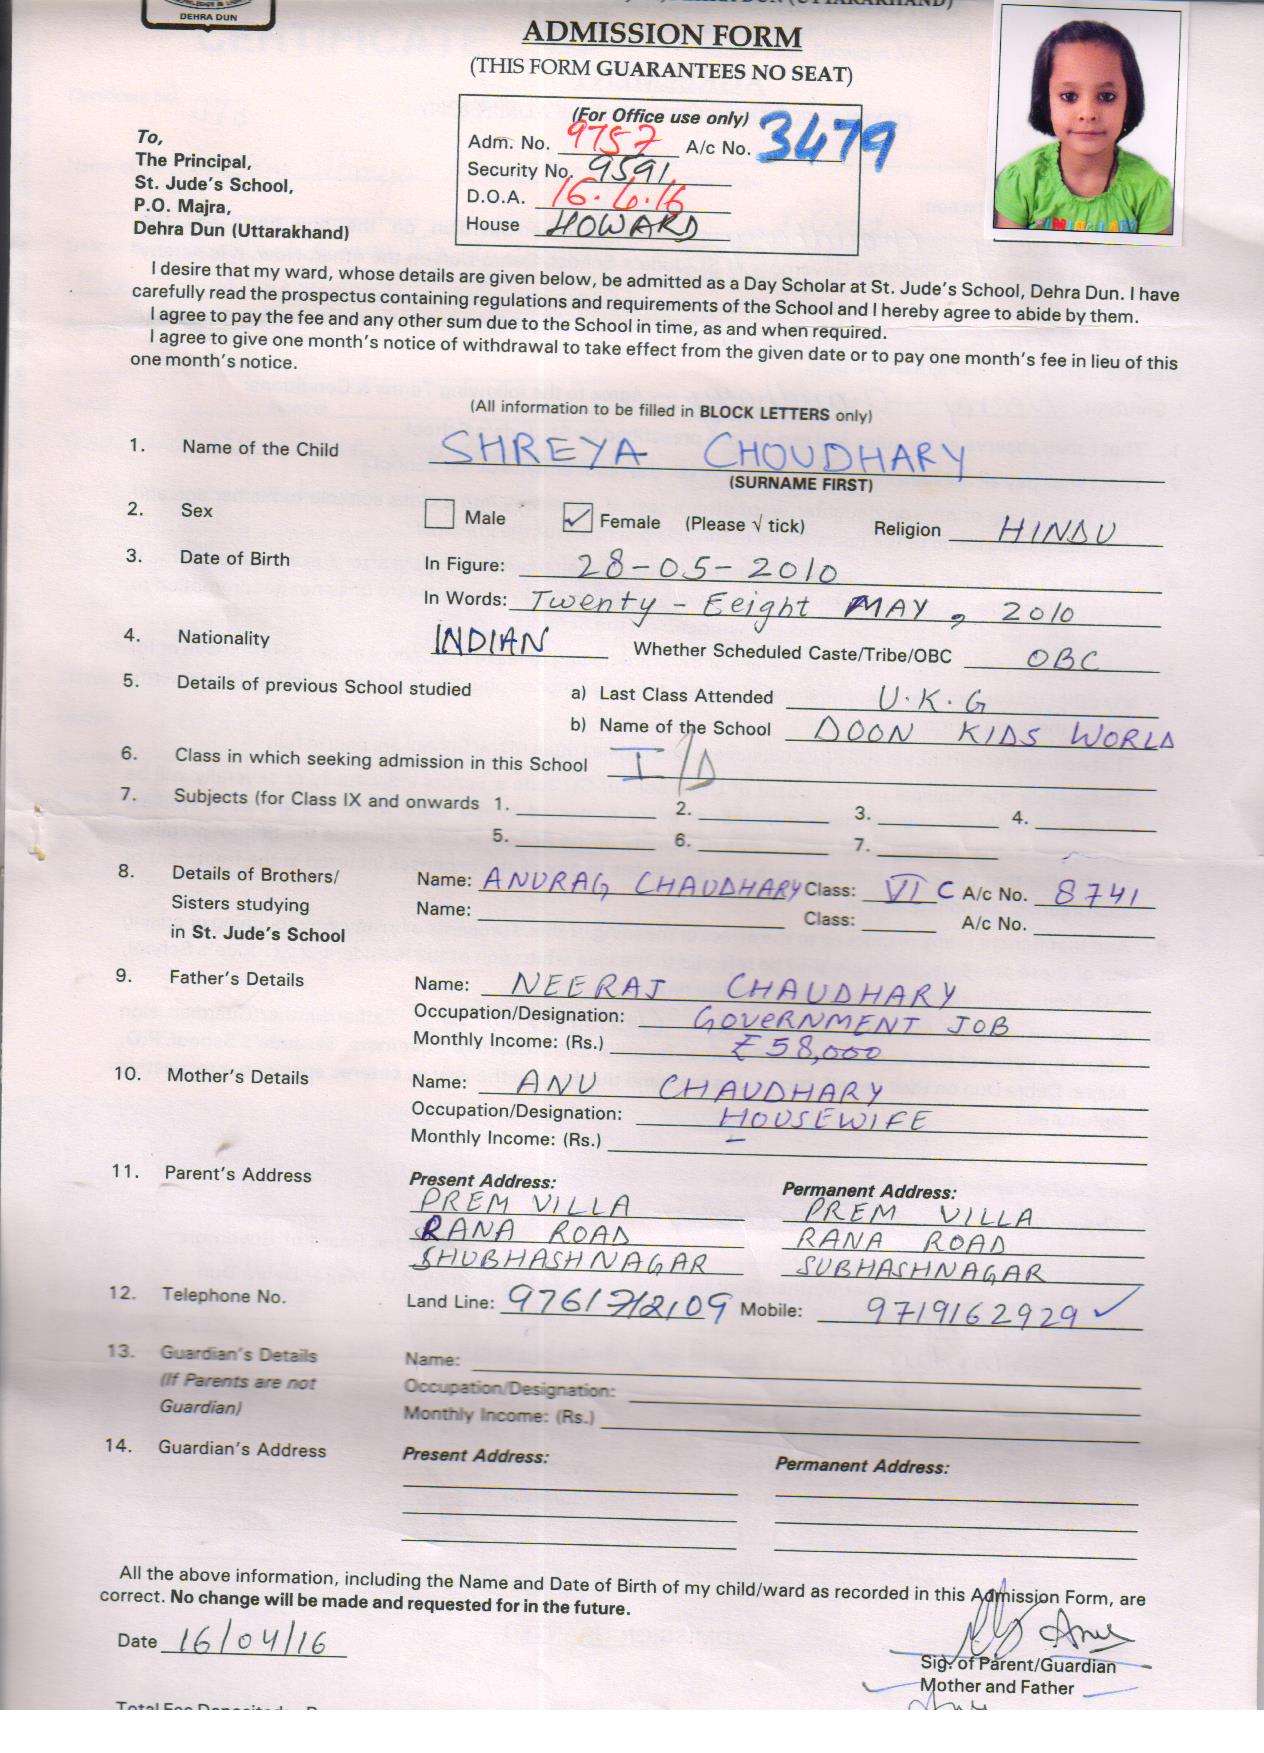 DEHRA DUN
ADMISSION FORM
(THIS FORM GUARANTEES NO SEAT)
(For Office use only)
Adm. No. 9757 A/c No. 3479
Security No. 9591
D.O.A. 16.4.16
House HOWARD
To,
The Principal,
St. Jude's School,
P.O. Majra,
Dehra Dun (Uttarakhand)
I desire that my ward, whose details are given below, be admitted as a Day Scholar at St. Jude's School, Dehra Dun. I have
carefully read the prospectus containing regulations and requirements of the School and I hereby agree to abide by them.
I agree to pay the fee and any other sum due to the School in time, as and when required.
I agree to give one month's notice of withdrawal to take effect from the given date or to pay one month's fee in lieu of this
one month's notice.
(All information to be filled in BLOCK LETTERS only)
1. Name of the Child SHREYA CHOUDHARY
(SURNAME FIRST)
2. Sex Male ✓ Female (Please √ tick) Religion HINDU
3. Date of Birth In Figure: 28-05-2010
In Words: Twenty - Eeight MAY, 2010
4. Nationality INDIAN Whether Scheduled Caste/Tribe/OBC OBC
5. Details of previous School studied a) Last Class Attended U.K.G
b) Name of the School DOON KIDS WORLD
6. Class in which seeking admission in this School I/D
7. Subjects (for Class IX and onwards 1. 2. 3. 4.
5. 6. 7.
8. Details of Brothers/ Name: ANURAG CHAUDHARY Class: VI C A/c No. 8741
Sisters studying Name: Class: A/c No.
in St. Jude's School
9. Father's Details Name: NEERAJ CHAUDHARY
Occupation/Designation: GOVERNMENT JOB
Monthly Income: (Rs.) ₹58,000
10. Mother's Details Name: ANU CHAUDHARY
Occupation/Designation: HOUSEWIFE
Monthly Income: (Rs.) –
11. Parent's Address Present Address: Permanent Address:
PREM VILLA PREM VILLA
RANA ROAD RANA ROAD
SHUBHASHNAGAR SUBHASHNAGAR
12. Telephone No. Land Line: Mobile: 9719162929 ✓
13. Guardian's Details Name:
(If Parents are not Occupation/Designation:
Guardian) Monthly Income: (Rs.)
14. Guardian's Address Present Address: Permanent Address:
All the above information, including the Name and Date of Birth of my child/ward as recorded in this Admission Form, are
correct. No change will be made and requested for in the future.
Date 16/04/16
Anu
Sig. of Parent/Guardian
Mother and Father